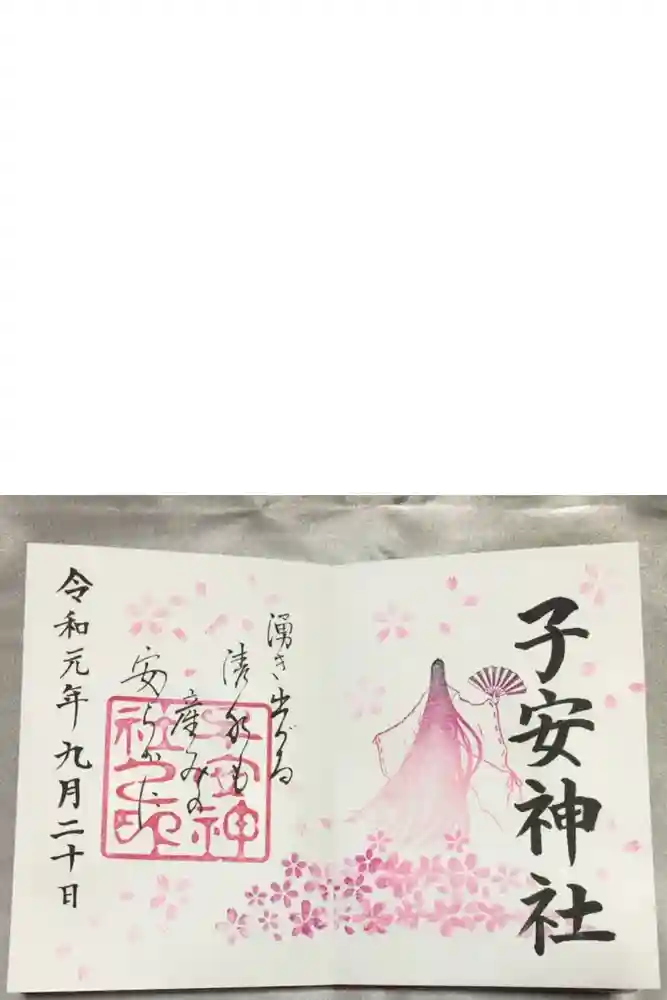 子安神社
湧き出づる
清水も
産みの
安らかに
令和元年九月二十日
子安神
社之印